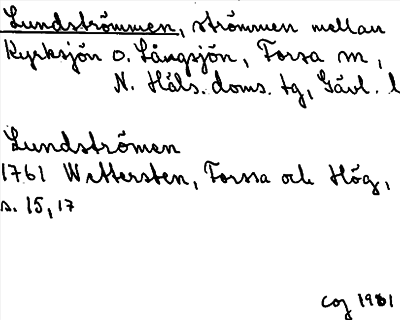 Lundströmmen, strömmen mellan
Kyrksjön o. Långsjön, Forsa sn,
N. Häls. doms. tg, Gävl. l
Lundströmen
1761 Wettersten, Forssa och Hög,
s. 15, 17
1981